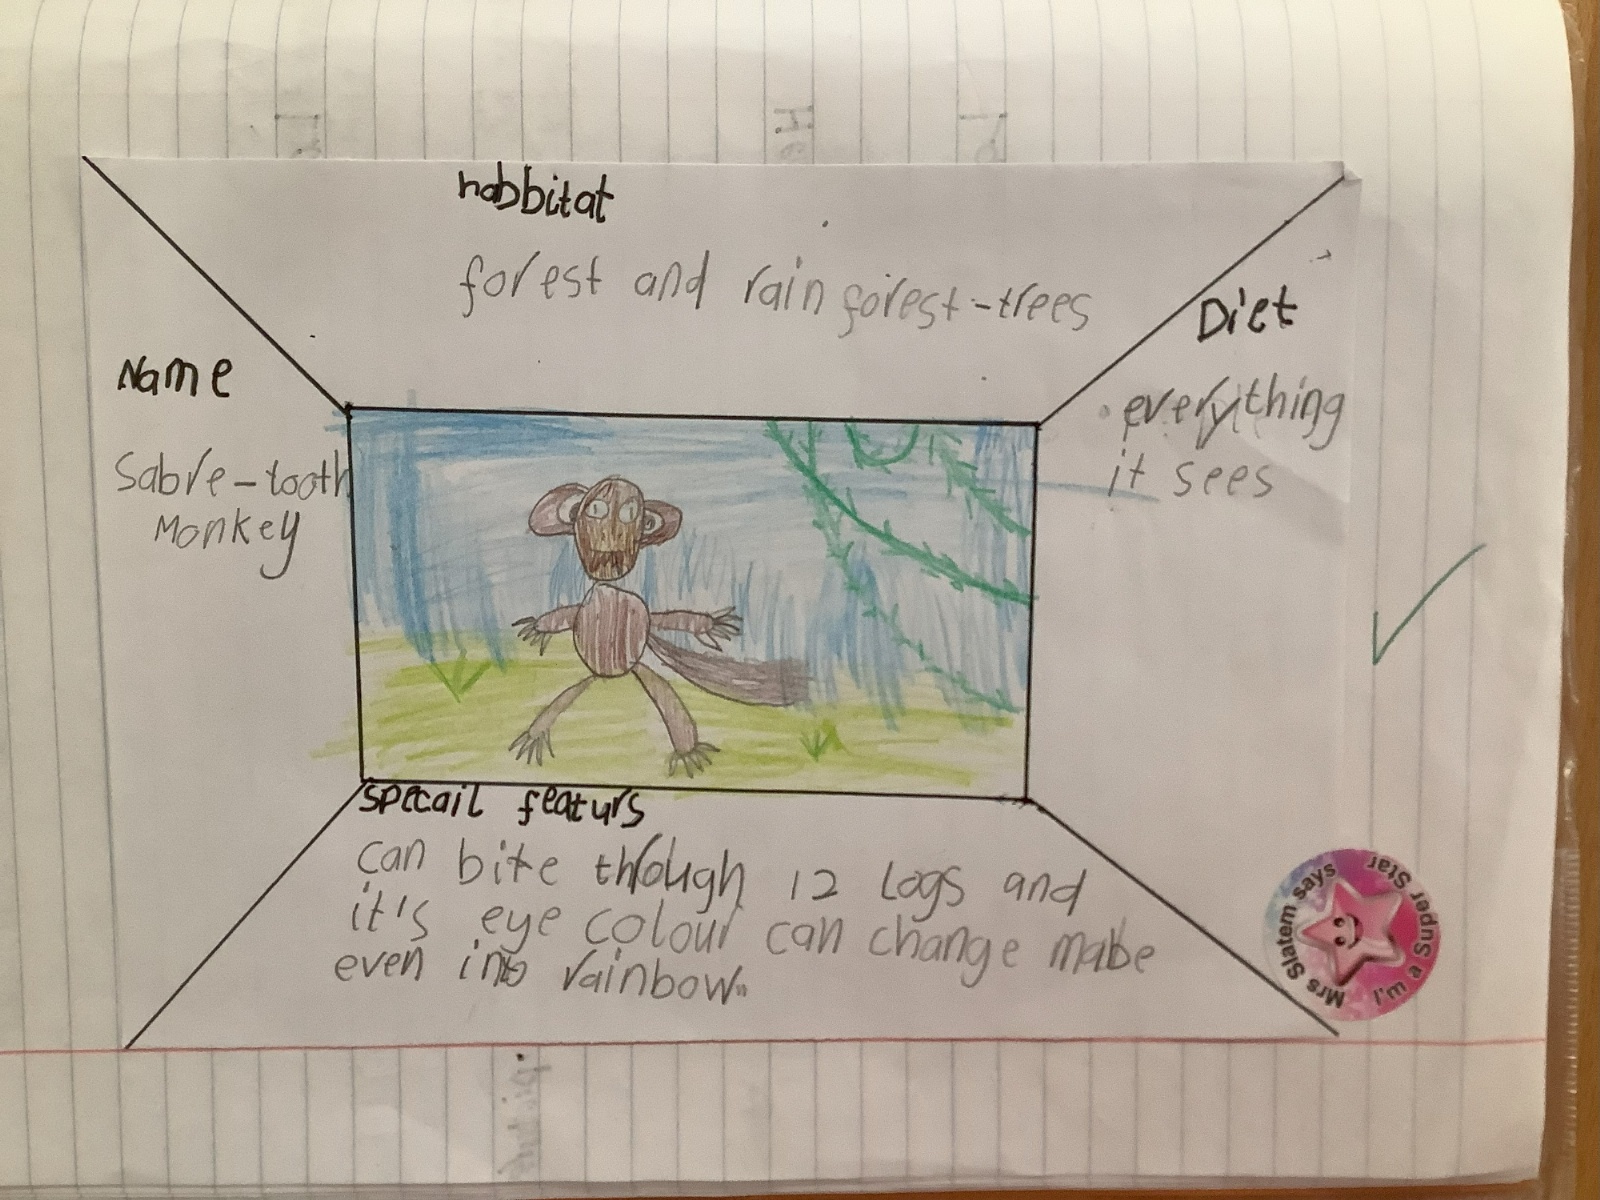 habbitat
forest and rainforest-trees
Diet
everything
it sees
Name
Sabre-tooth
Monkey
specail featurs
can bite through 12 logs and
it's eye colour can change mabe
even into rainbow.
Mrs Slatem says
I'm a Super Star